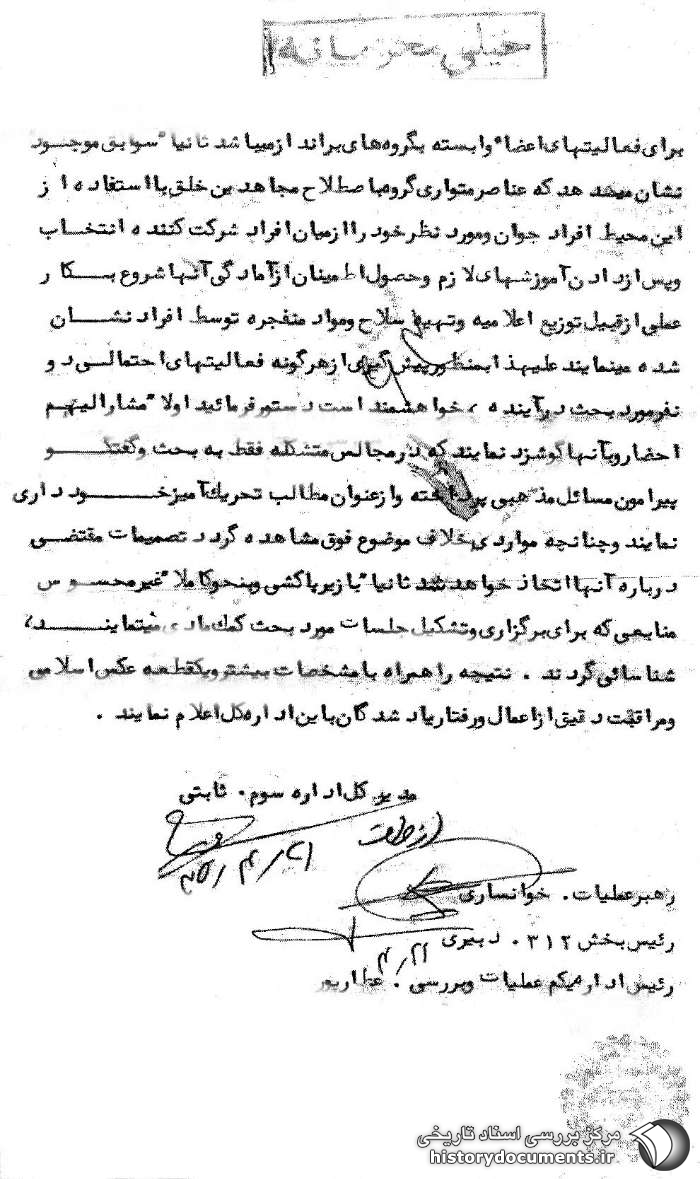 خیلی محرمانه
برای فعالیتهای اعضاء وابسته بگروه‌های برانداز میباشد ثانیا" سوابق موجود
نشان میدهد که عناصر متواری گروه باصطلاح مجاهدین خلق با استفاده از
این محیط افراد جوان و مورد نظر خود را از میان افراد شرکت کننده انتخاب
و پس از دادن آموزشهای لازم و حصول اطمینان از آمادگی آنها شروع بکار
عملی از قبیل توزیع اعلامیه و تهیه سلاح و مواد منفجره توسط افراد نشان
شده مینمایند علیهذا بمنظور پیش گیری از هرگونه فعالیتهای احتمالی دو
نفر مورد بحث در آینده ، خواهشمند است دستور فرمائید اولا" مشارالیهم
احضار و بآنها گوشزد نمایند که در مجالس متشکله فقط به بحث و گفتگو
پیرامون مسائل مذهبی پرداخته و از عنوان مطالب تحریک آمیز خودداری
نمایند و چنانچه مواردی خلاف موضوع فوق مشاهده گردد تصمیمات مقتضی
درباره آنها اتخاذ خواهد شد ثانیا" با زیرپاکشی و بنحو کاملا" غیر محسوس
منابعی که برای برگزاری و تشکیل جلسات مورد بحث کمک مادی مینمایند ،
شناسائی گردند . نتیجه را همراه با مشخصات بیشتر و یکقطعه عکس اسلامی
و مراقبت دقیق از اعمال و رفتار یاد شدگان باین اداره کل اعلام نمایند .
مدیر کل اداره سوم . ثابتی
از طرف
رهبر عملیات . خوانساری
رئیس بخش ۳۱۲ . دبیری
۴/۲۱
رئیس اداره یکم عملیات و بررسی . عطارپور
مرکز بررسی اسناد تاریخی
historydocuments.ir